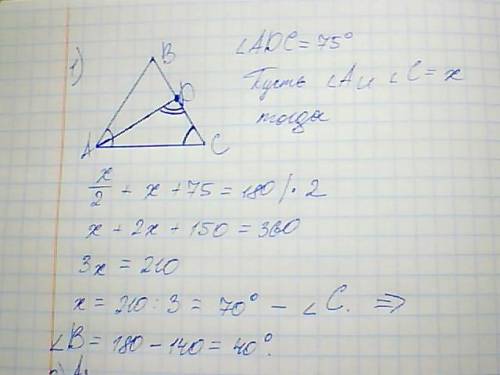 1)
B
D
A
C
∠ADC = 75°
Пусть ∠A и ∠C = x
тогда
x/2 + x + 75 = 180 /· 2
x + 2x + 150 = 360
3x = 210
x = 210 : 3 = 70° – ∠C. ⇒
∠B = 180 – 140 = 40°.